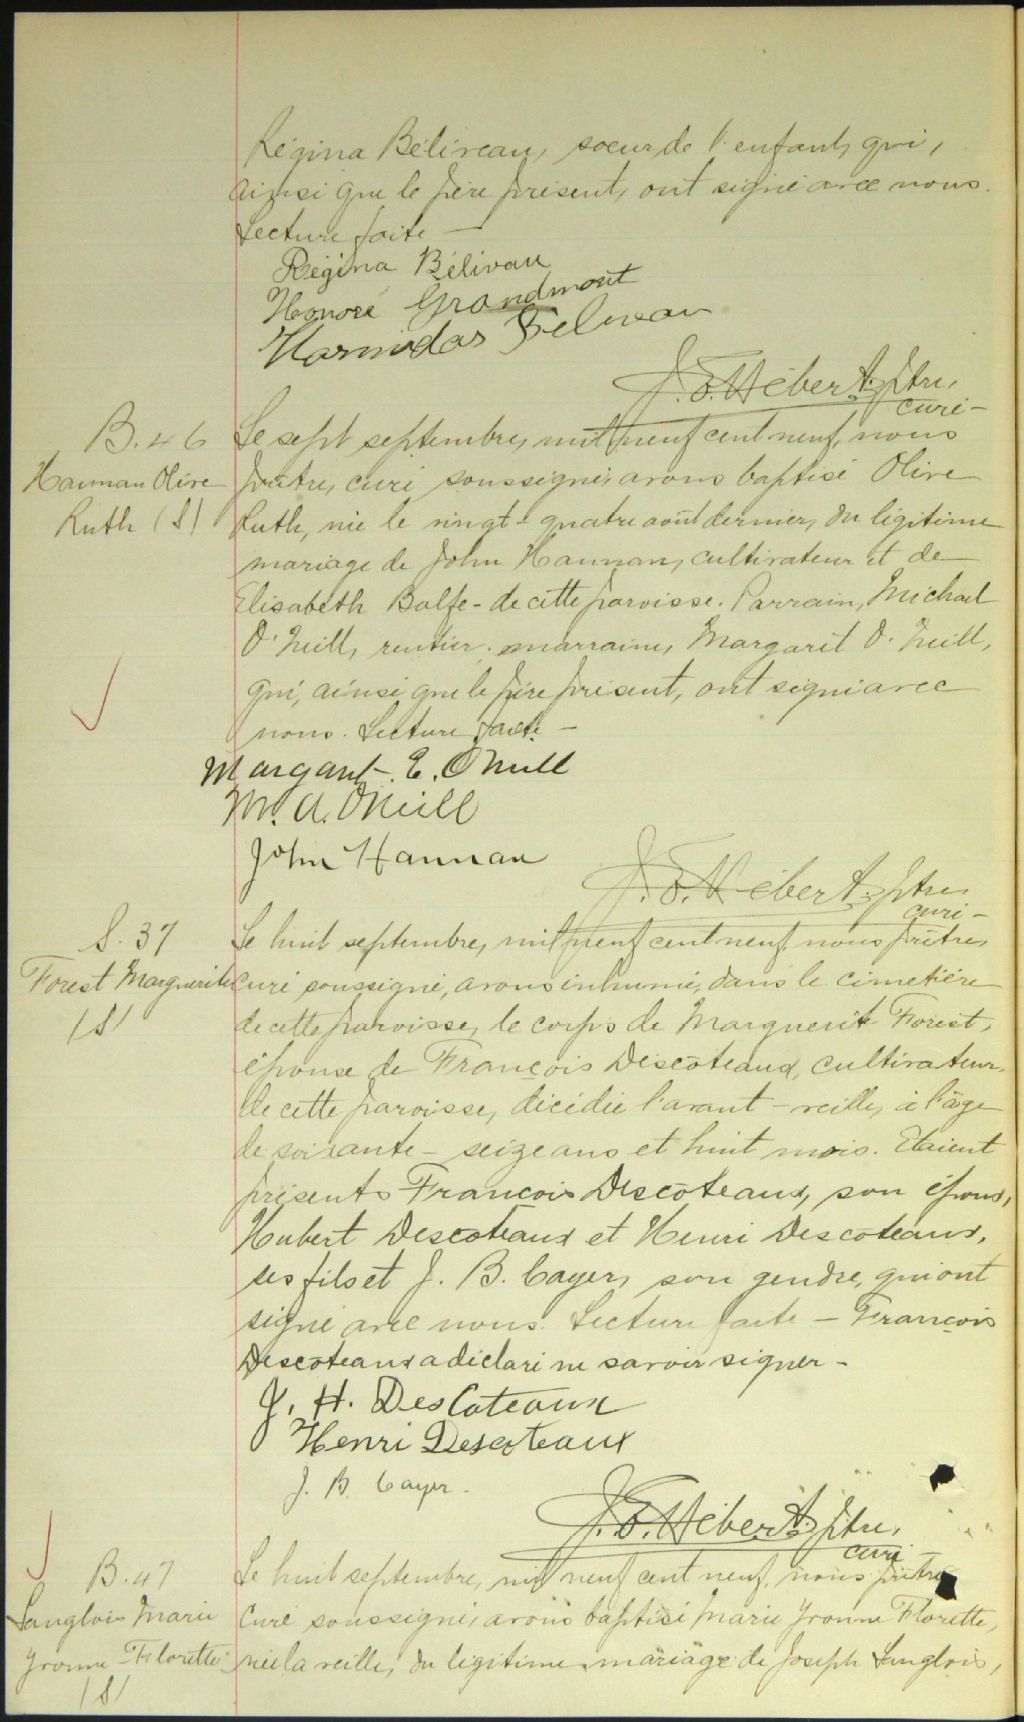 Régina Béliveau, soeur de l'enfant, qui,
ainsi que le père présent, ont signé avec nous.
Lecture faite —
Régina Bélivau
Honoré Grandmont
Harmidas Beliveau
J. E. Hébert. Ptre,
curé -
B. 46
Hannan Olive
Ruth (S)
Le sept septembre, mil neuf cent neuf, nous
prêtre, curé soussigné, avons baptisé Olive
Ruth, née le vingt-quatre août dernier, du légitime
mariage de John Hannan, cultivateur et de
Elisabeth Balfe - de cette paroisse. Parrain, Michael
O'Neill, rentier, marraine, Margaret O'Neill,
qui, ainsi que le père présent, ont signé avec
nous. Lecture faite. —
Margaret. E. O'Neill
M. A. O'Neill
John Hannan
J. E. Hébert. Ptre,
curé -
S. 37
Forest Marguerite
(S)
Le huit septembre, mil neuf cent neuf, nous prêtre,
curé soussigné, avons inhumé, dans le cimetière
de cette paroisse, le corps de Marguerite Forest,
épouse de François Descôteaux, cultivateur,
de cette paroisse, décédée l'avant-veille, à l'âge
de soixante-seize ans et huit mois. Etaient
présents François Descôteaux, son époux,
Hubert Descôteaux et Henri Descôteaux,
ses fils et J. B. Cayer, son gendre, qui ont
signé avec nous. Lecture faite — François
Descôteaux a déclaré ne savoir signer -
J. H. DesCoteaux
Henri Descoteaux
J. B. Cayer.
J. E. Hébert. Ptre,
curé
B. 47
Langlois Marie
Yvonne Florette
(S)
Le huit septembre, mil neuf cent neuf, nous prêtre
curé soussigné, avons baptisé Marie Yvonne Florette,
née la veille, du légitime mariage de Joseph Langlois,